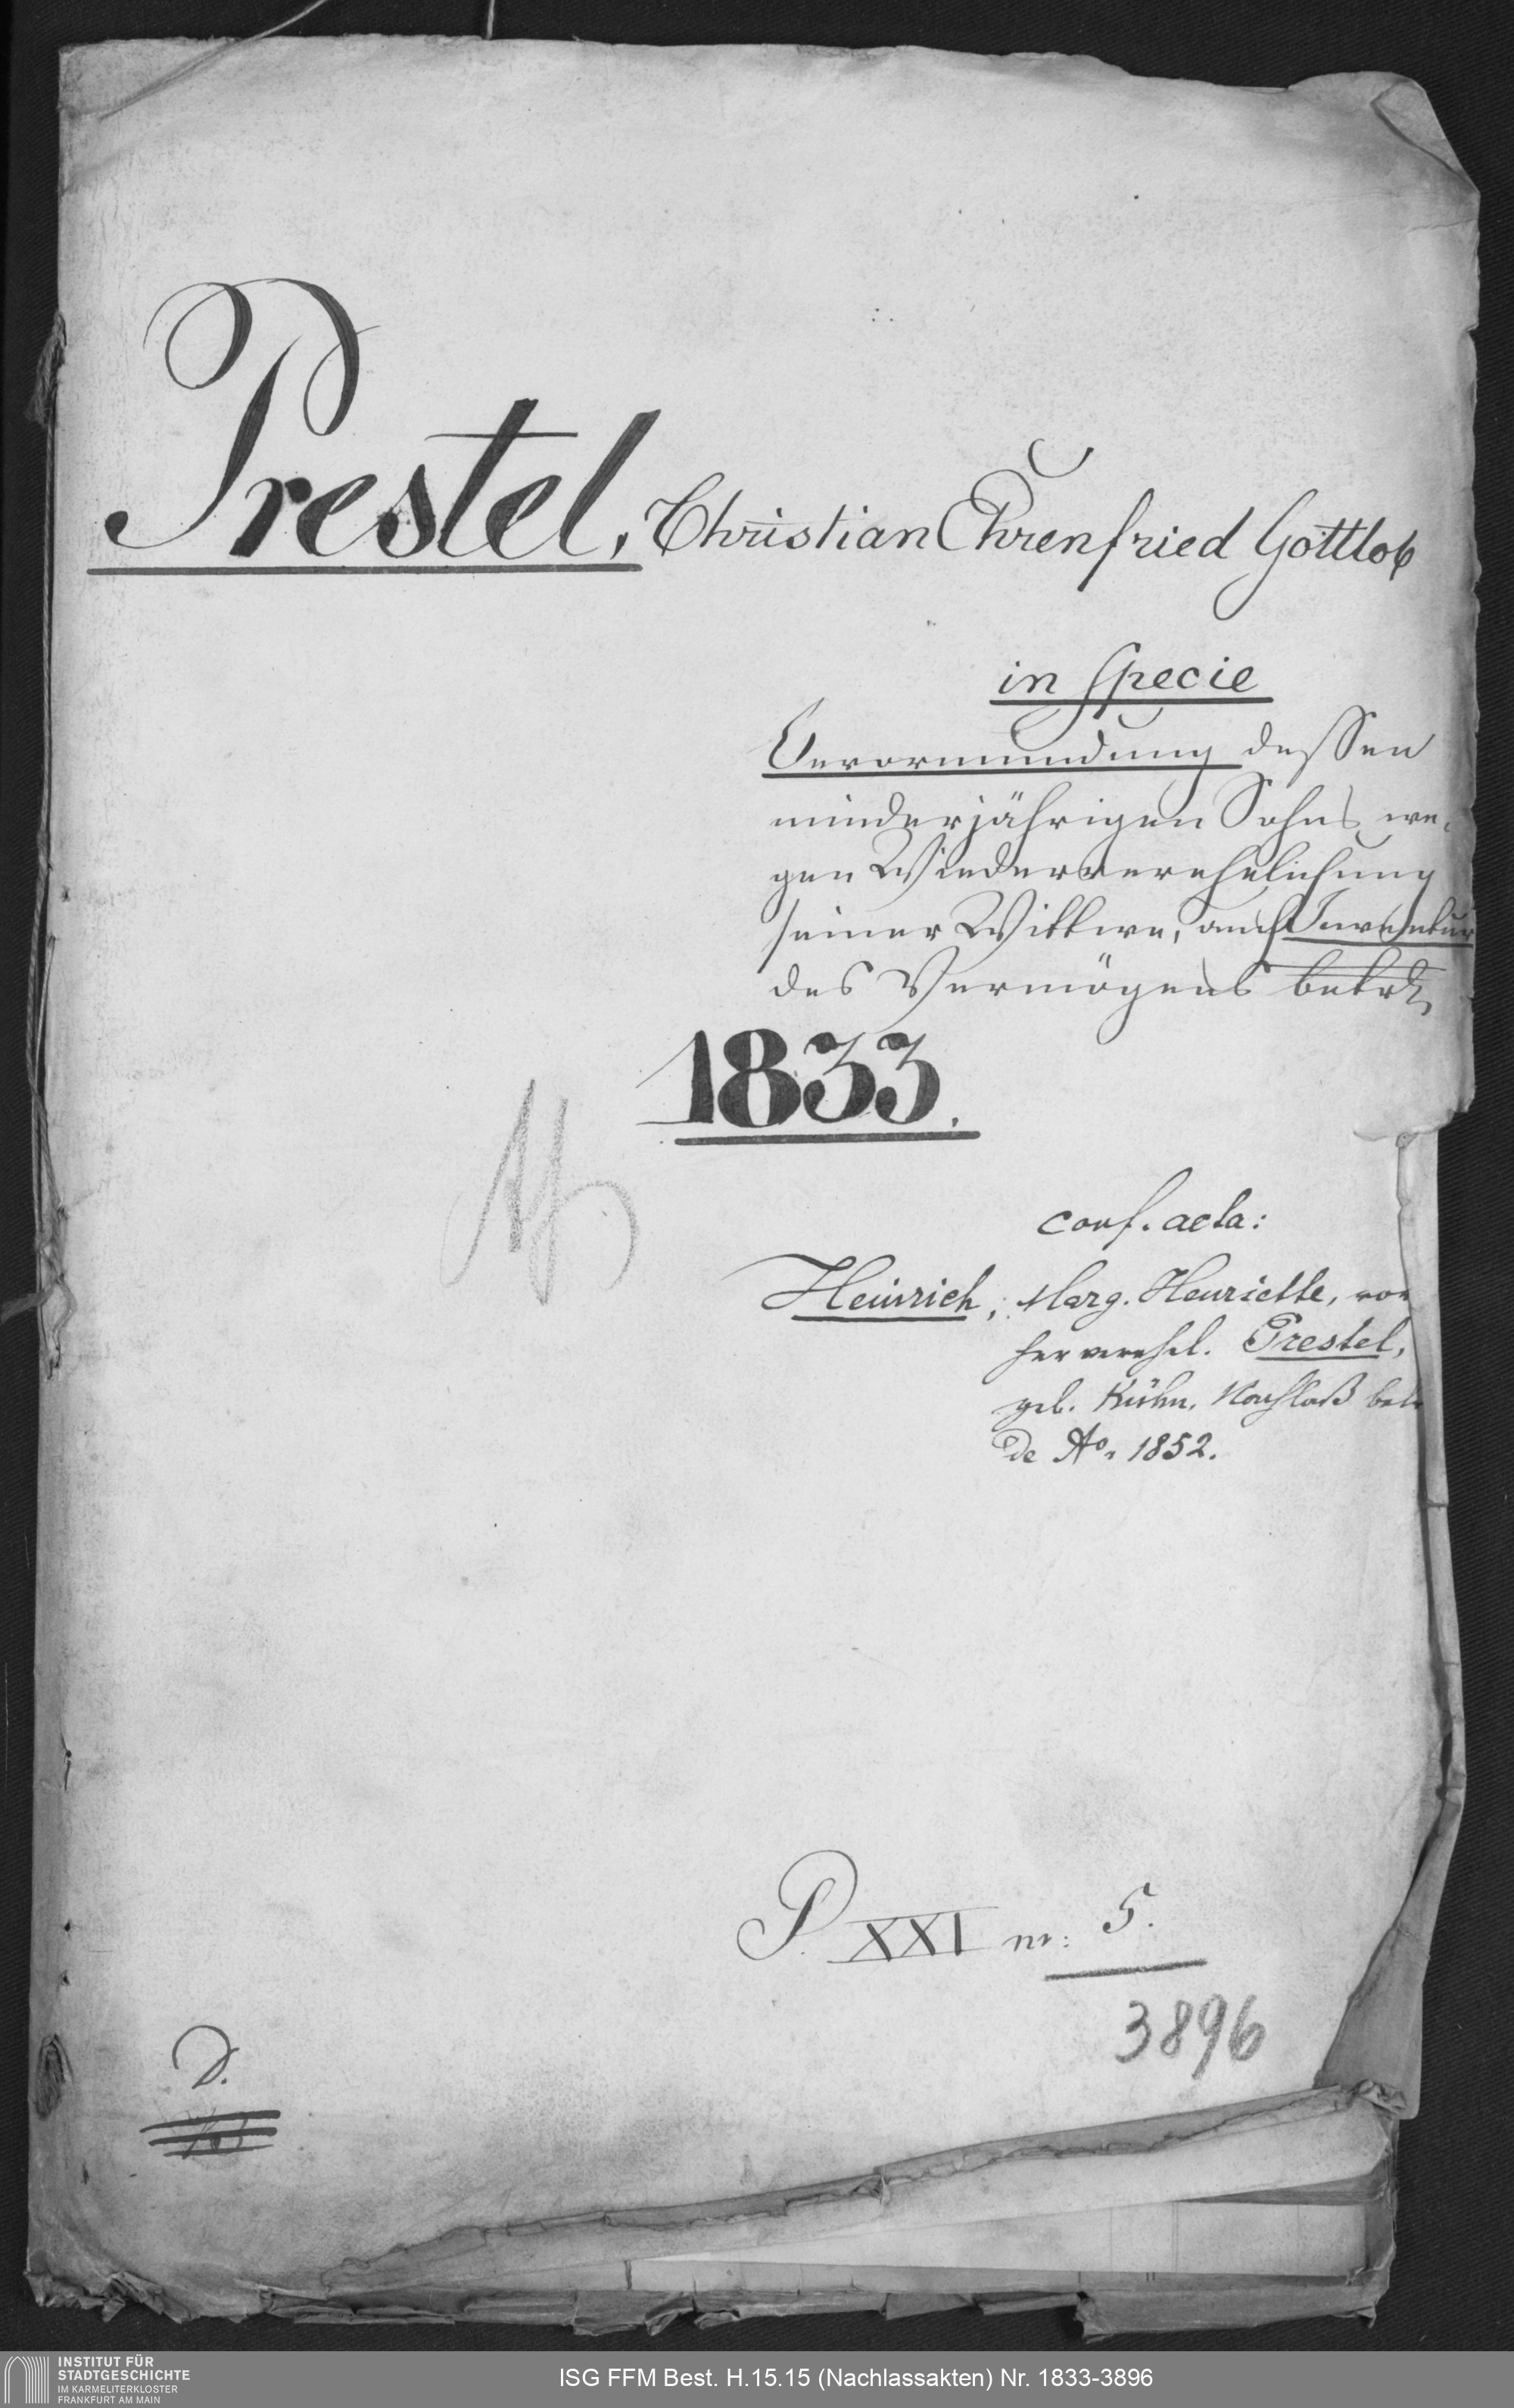 Prestel, Christian Ehrenfried Gottlob
in specie
Bevormundung dessen
minderjährigen Sohns we-
gen Wiederverehelichung
seiner Wittwe, auch Inventur
des Vermögens betr.
1833.
conf. acta:
Heinrich, Marg. Henriette, vor
her verehel. Prestel,
geb. Kühn, Nachlaß betr
de Ao. 1852.
P. XXI nr: 5.
3896
D.
INSTITUT FÜR
STADTGESCHICHTE
IM KARMELITERKLOSTER
FRANKFURT AM MAIN
ISG FFM Best. H.15.15 (Nachlassakten) Nr. 1833-3896